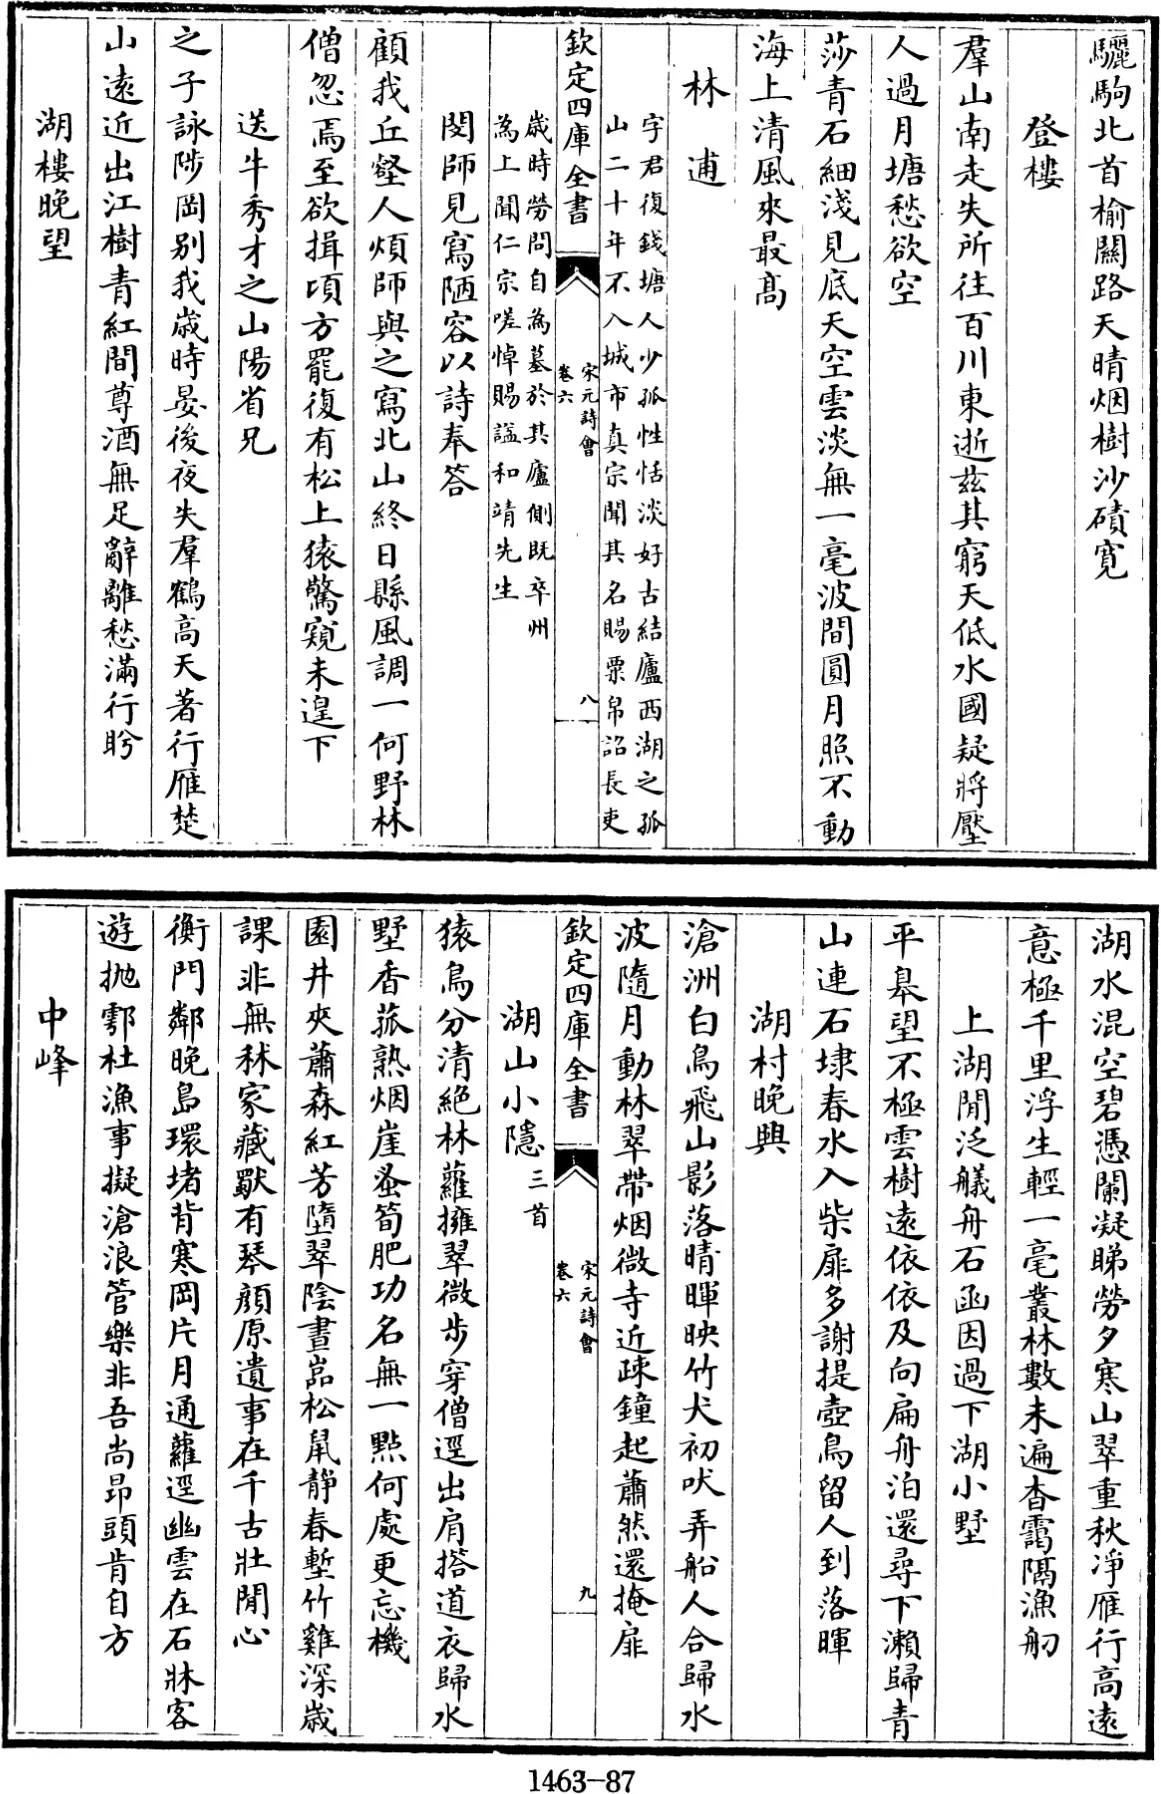 驪駒北首榆關路天晴烟樹沙磧寛
登樓
羣山南走失所往百川東逝兹其窮天低水國疑將壓
人過月塘愁欲空
莎青石細淺見底天空雲淡無一毫波間圓月照不動
海上清風來最髙
林逋
字君復錢塘人少孤性恬淡好古結廬西湖之孤
山二十年不入城市真宗聞其名賜粟帛詔長吏
欽定四庫全書
宋元詩會
卷六
八
歳時勞問自為墓於其廬側既卒州
為上聞仁宗嗟悼賜諡和靖先生
閔師見寫陋容以詩奉答
顧我丘壑人煩師與之寫北山終日縣風調一何野林
僧忽焉至欲揖項方罷復有松上猿驚窺未遑下
送牛秀才之山陽省兄
之子詠陟岡别我歳時晏後夜失羣鶴高天著行雁楚
山遠近出江樹青紅間尊酒無足辭離愁滿行盻
湖樓晚望
湖水混空碧憑闌凝睇勞夕寒山翠重秋淨雁行高遠
意極千里浮生輕一毫叢林數未遍杳靄隔漁舠
上湖閒泛艤舟石函因過下湖小墅
平皋望不極雲樹遠依依及向扁舟泊還尋下瀨歸青
山連石埭春水入柴扉多謝提壺鳥留人到落暉
湖村晚興
滄洲白鳥飛山影落晴暉映竹犬初吠弄船人合歸水
波隨月動林翠帶烟微寺近疎鐘起蕭然還掩扉
欽定四庫全書
宋元詩會
卷六
九
湖山小隱三首
猿鳥分清絶林蘿擁翠微步穿僧逕出肩搭道衣歸水
墅香菰熟烟崖蚤筍肥功名無一點何處更忘機
園井夾蕭森紅芳墮翠陰晝嵓松鼠靜春塹竹雞深歳
課非無秫家藏獸有琴顔原遺事在千古壯閒心
衡門鄰晚島環堵背寒岡片月通蘿逕幽雲在石牀客
遊抛鄠杜漁事擬滄浪管樂非吾尚昂頭肯自方
中峰
1463-87